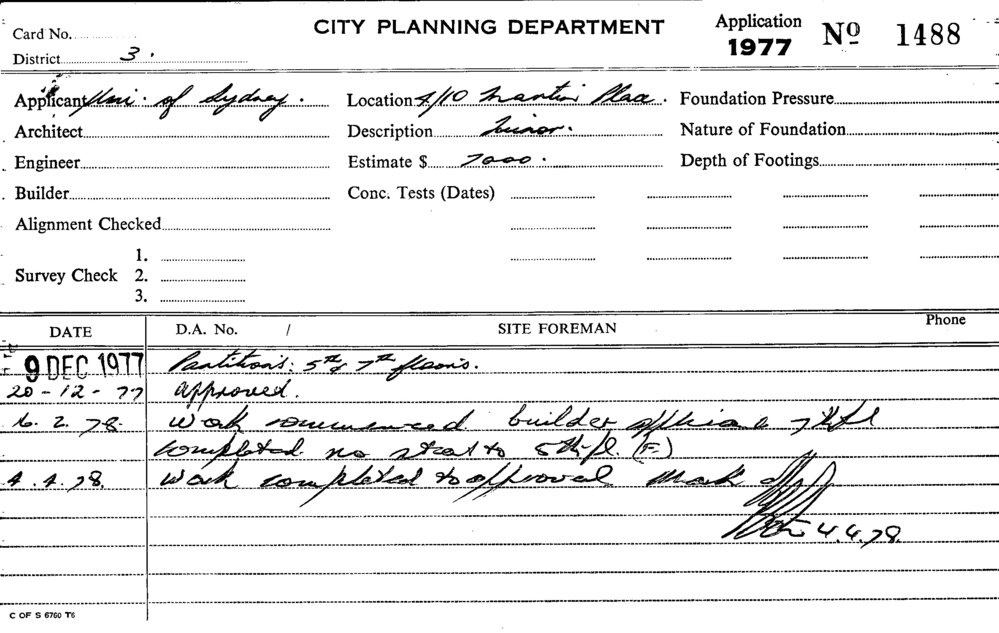 CITY PLANNING DEPARTMENT
Application 1977 Nº 1488
Card No.
District 3.
Applicant Uni. of Sydney. Location 4/10 Martin Place. Foundation Pressure
Architect Description Minor. Nature of Foundation
Engineer Estimate $ 7000. Depth of Footings
Builder Conc. Tests (Dates)
Alignment Checked
Survey Check 1.
2.
3.
DATE D.A. No. / SITE FOREMAN Phone
9 DEC 1977 Partitions: 5th & 7th floors.
20-12-77 Approved.
6. 2. 78. Work commenced builder 7th fl
completed no start to 5th fl. (F.)
4. 4. 78. Work completed to approval Mark off
4.4.78.
C OF S 6760 T6